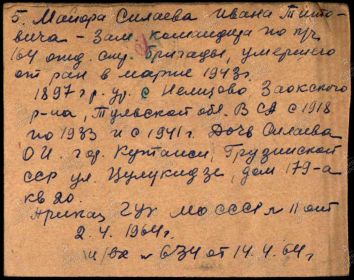 5. Майора Силаева Ивана Тито-
вича – Зам. командира по п/ч
164 отд. стр. бригады, умершего
от ран в марте 1943г.
1897 г.р. ур. с Нелидово Заокского
р-на, Тульской обл. В СА с 1918
по 1933 и с 1941 г. Дочь Силаева
О И. гор. Кутаиси, Грузинской
ССР ул. Цулукидзе, дом 179-а
кв 20.
Приказ ГУК МО СССР № 11 от
2. 4. 1964г.
№ 634 от 14. 4. 64г.